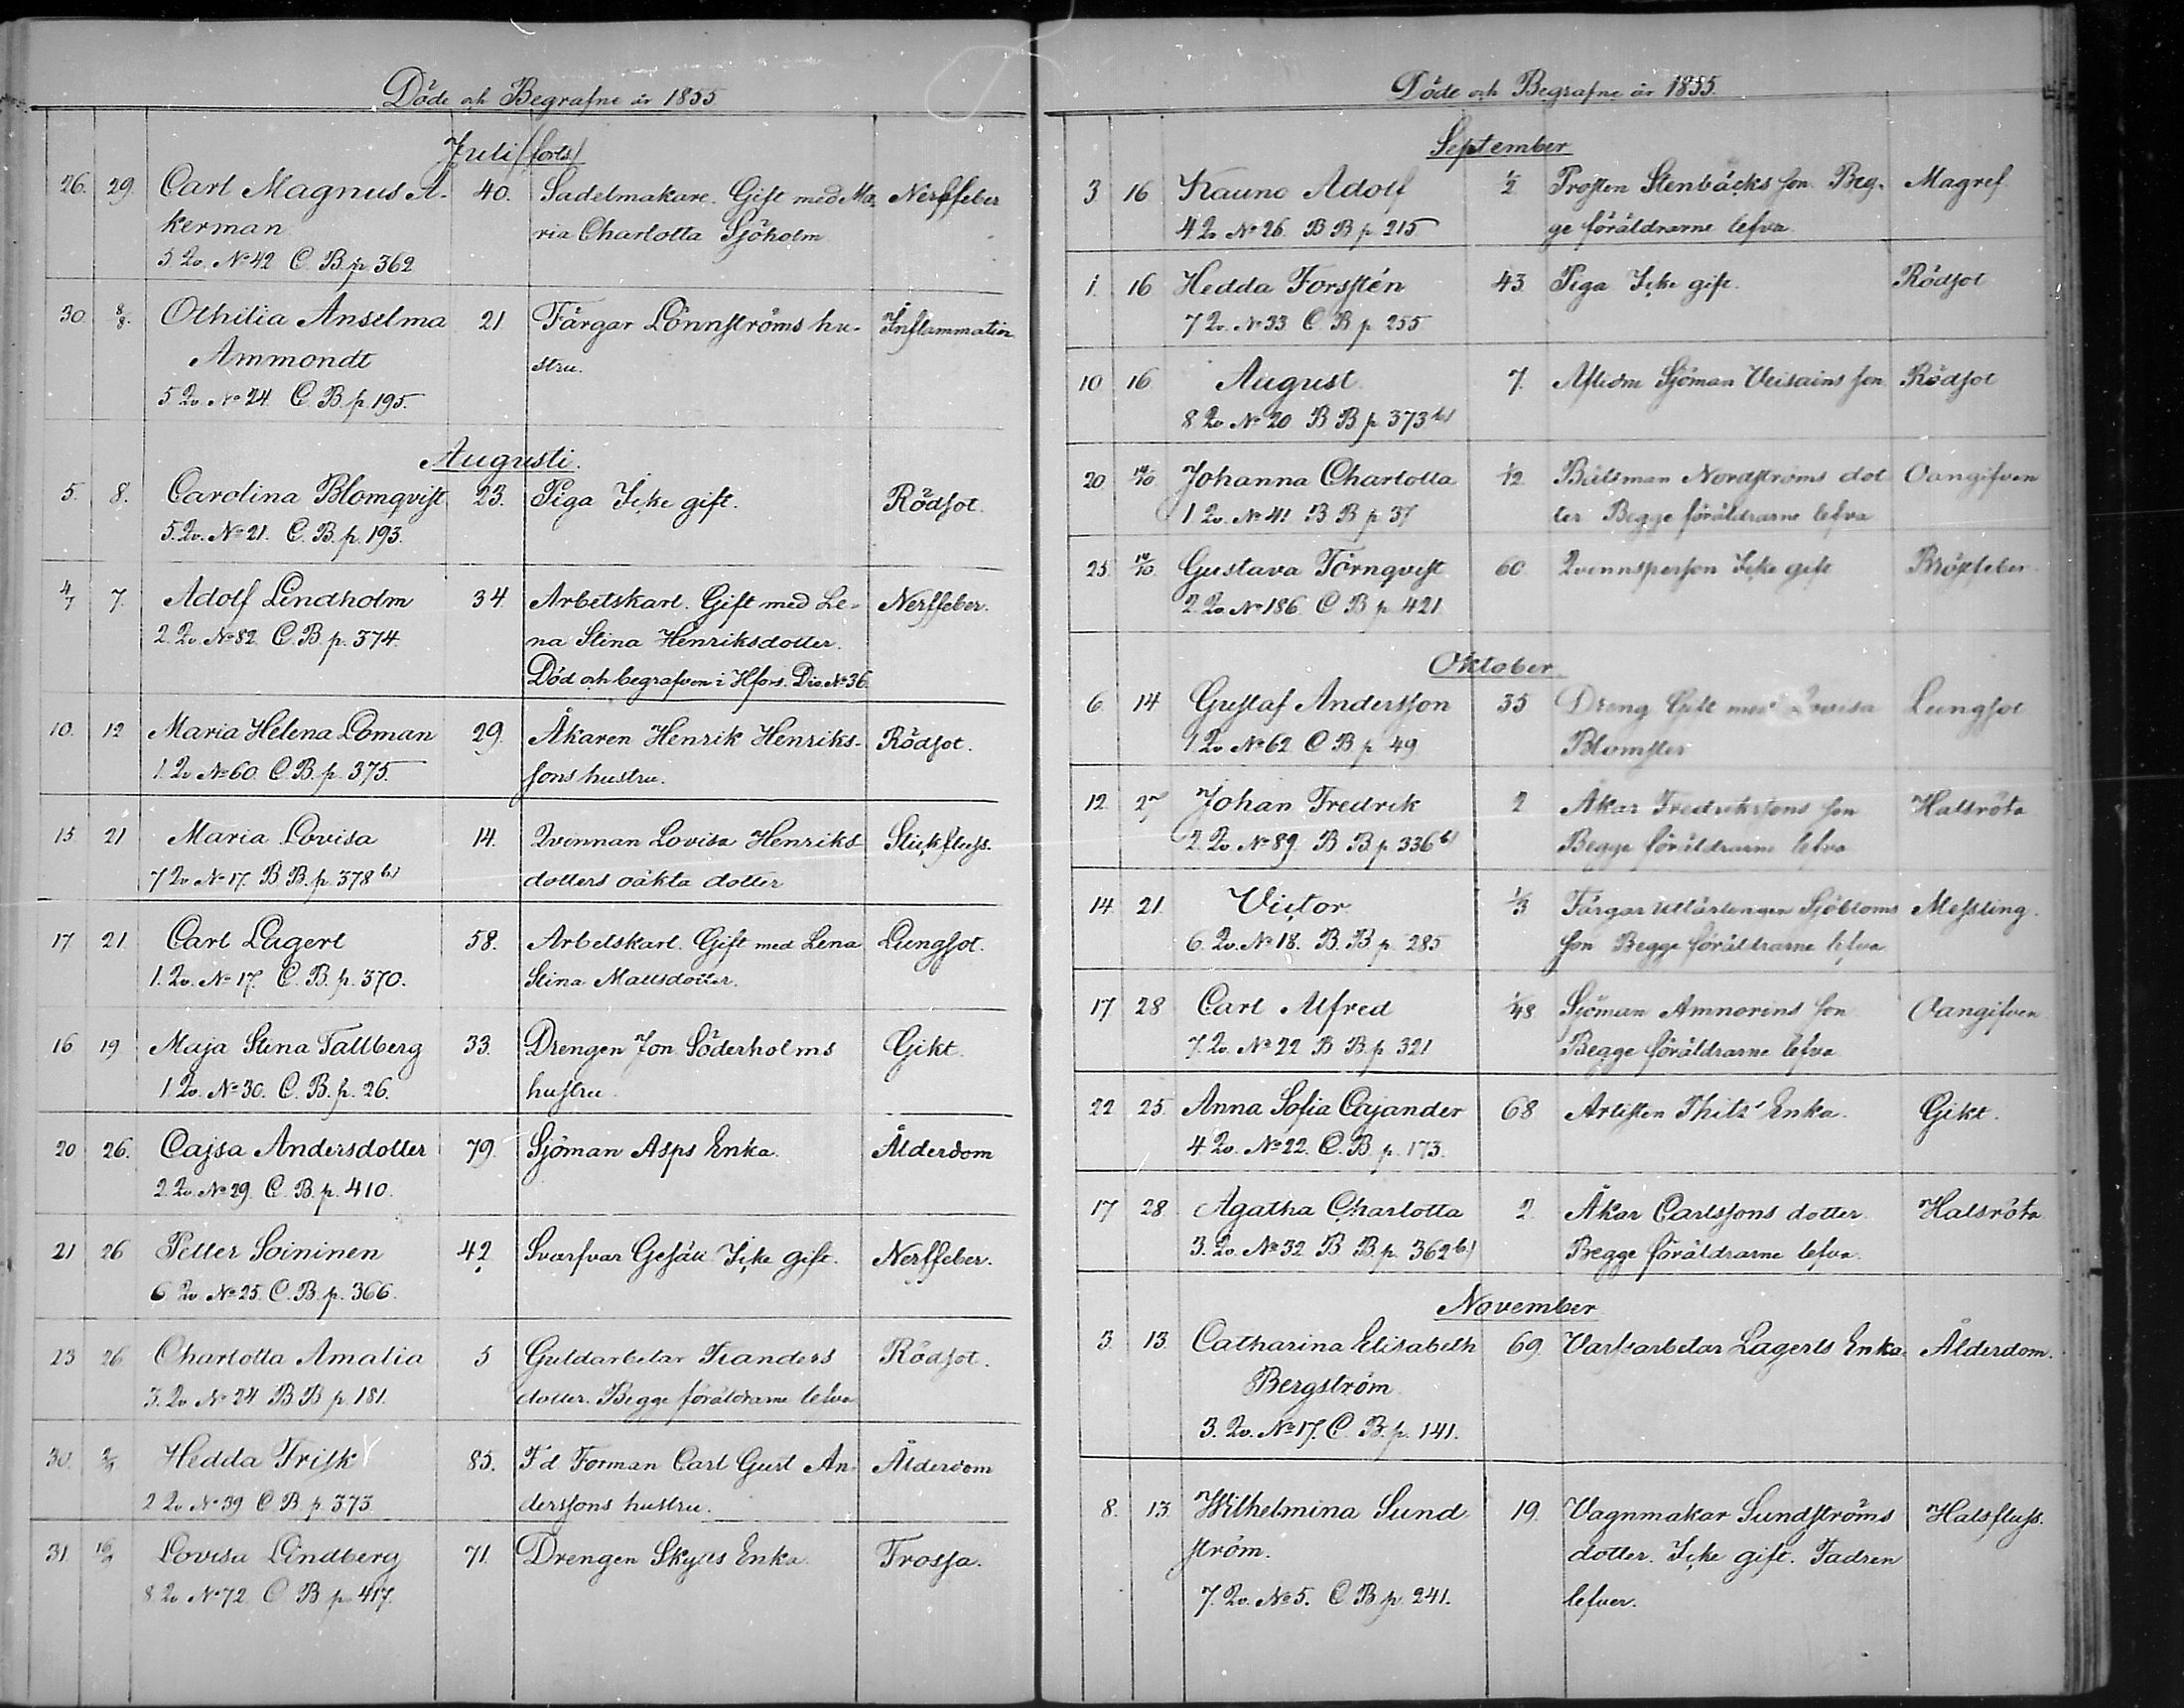 Döde och Begrafne år 1855
Juli (forts)
26. 29. Carl Magnus Å- 40. Sadelmakare. Gift med Ma- Nerffeber
kerman ria Charlotta Sjöholm
5 Qv. No 42 C. B. p. 362
30. 8/8. Othilia Anselma 21. Färgar Lönnströms hu- Inflammation
Ammondt stru.
5 Qv. No 24. C. B. p. 195.
Augusti.
5. 8. Carolina Blomqvist 23. Piga Icke gift. Rödsot.
5. Qv. No 21. C. B. p. 193.
4/7 7. Adolf Lindholm 34. Arbetskarl. Gift med Le- Nerffeber.
2. Qv. No 82. C. B. p. 374. na Stina Henriksdotter.
Död och begrafven i Hfors. Dio No 36.
10. 12 Maria Helena Loman 29. Åkaren Henrik Henriks- Rödsot.
1. Qv No 60. C. B. p. 375. sons hustru.
15. 21 Maria Lovisa 14. Qvinnan Lovisa Henriks Stickfluss.
7 Qv No 17. B. B. p. 378 b) dotters oäkta dotter
17 21. Carl Lagert 58. Arbetskarl. Gift med Lena Lungsot.
1. Qv. No 17. C. B. p. 370. Stina Mattsdotter.
16 19 Maja Stina Tallberg 33. Drengen Jon Söderholms Gikt.
1. Qv. No 30. C. B. p. 26. hustru.
20 26. Cajsa Andersdotter 79. Sjöman Asps Enka. Ålderdom
2. Qv. No 29. C. B. p. 410.
21 26 Petter Soininen 42. Svarfvar Gesäll Icke gift. Nerffeber.
6 Qv No 25. C. B. p. 366.
23 26 Charlotta Amalia 5 Guldarbetar Tranders Rödsot.
3. Qv No 24 B. B p. 181. dotter. Begge föräldrarne lefva
30. 2/9 Hedda Frisk 85. Fd Forman Carl Gust An- Ålderdom
2 Qv No 39 C. B. p. 373. derssons hustru.
31. 16/9 Lovisa Lindberg 71. Drengen Skytts Enka. Trossa.
8 Qv No 72. C. B p. 417.
Döde och Begrafne år 1855.
September
3 16 Kauno Adolf 1/2 Prosten Stenbäcks son Beg- Magref
4 Qv No 26. B B p. 215 ge föräldrarne lefva
1. 16 Hedda Forstén 43. Piga Icke gift. Rödsot
7 Qv. No 33 C. B p. 255
10 16 August 7. Aflidne Sjöman Veisains son Rödsot
8 Qv. No 20 B B p. 373 b)
20. 14/10 Johanna Charlotta 1/2 Båtsman Nordströms dot Oangifven
1 Qv. No 41 B B p. 37 ter Begge föräldrarne lefva
25. 14/10. Gustava Törnqvist 60. Qvinnsperson Icke gift Bröstfeber
2 Qv No 186. C B p. 421.
Oktober
6. 14 Gustaf Andersson 35 Dreng Gift med Lovisa Lungsot
1 Qv No 62 C B p. 49 Blomster
12. 27 Johan Fredrik 2 Åkar Fredrikssons son Halsröta
2. Qv. No 89. B B. p. 336 b) Begge föräldrarne lefva
14. 21. Victor 1/3 Färgar Utlärlingen Sjöbloms Messling.
6. Qv. No 18. B. B. p. 285 son Begge föräldrarne lefva
17 28 Carl Alfred 1/48 Sjöman Amnorins son Oangifven
7. Qv. No 22 B B. p. 321 Begge föräldrarne lefva
22 25. Anna Sofia Cajander 68 Artisten Thils' Enka. Gikt.
4 Qv. No 22. C. B. p. 173.
17 28 Agatha Charlotta 2. Åkar Carlssons dotter Halsröta
3. Qv. No 32 B B. p. 362 b.) Begge föräldrarne lefva.
November
3. 13. Catharina Elisabeth 69. Varfsarbetar Lagerts Enka. Ålderdom.
Bergström.
3. Qv. No 17. C. B. p. 141.
8. 13. Wilhelmina Sund 19. Vagnmakar Sundströms Halsfluss.
ström. dotter. Icke gift. Fadren
7. Qv. No 5. C B p. 241. lefver.